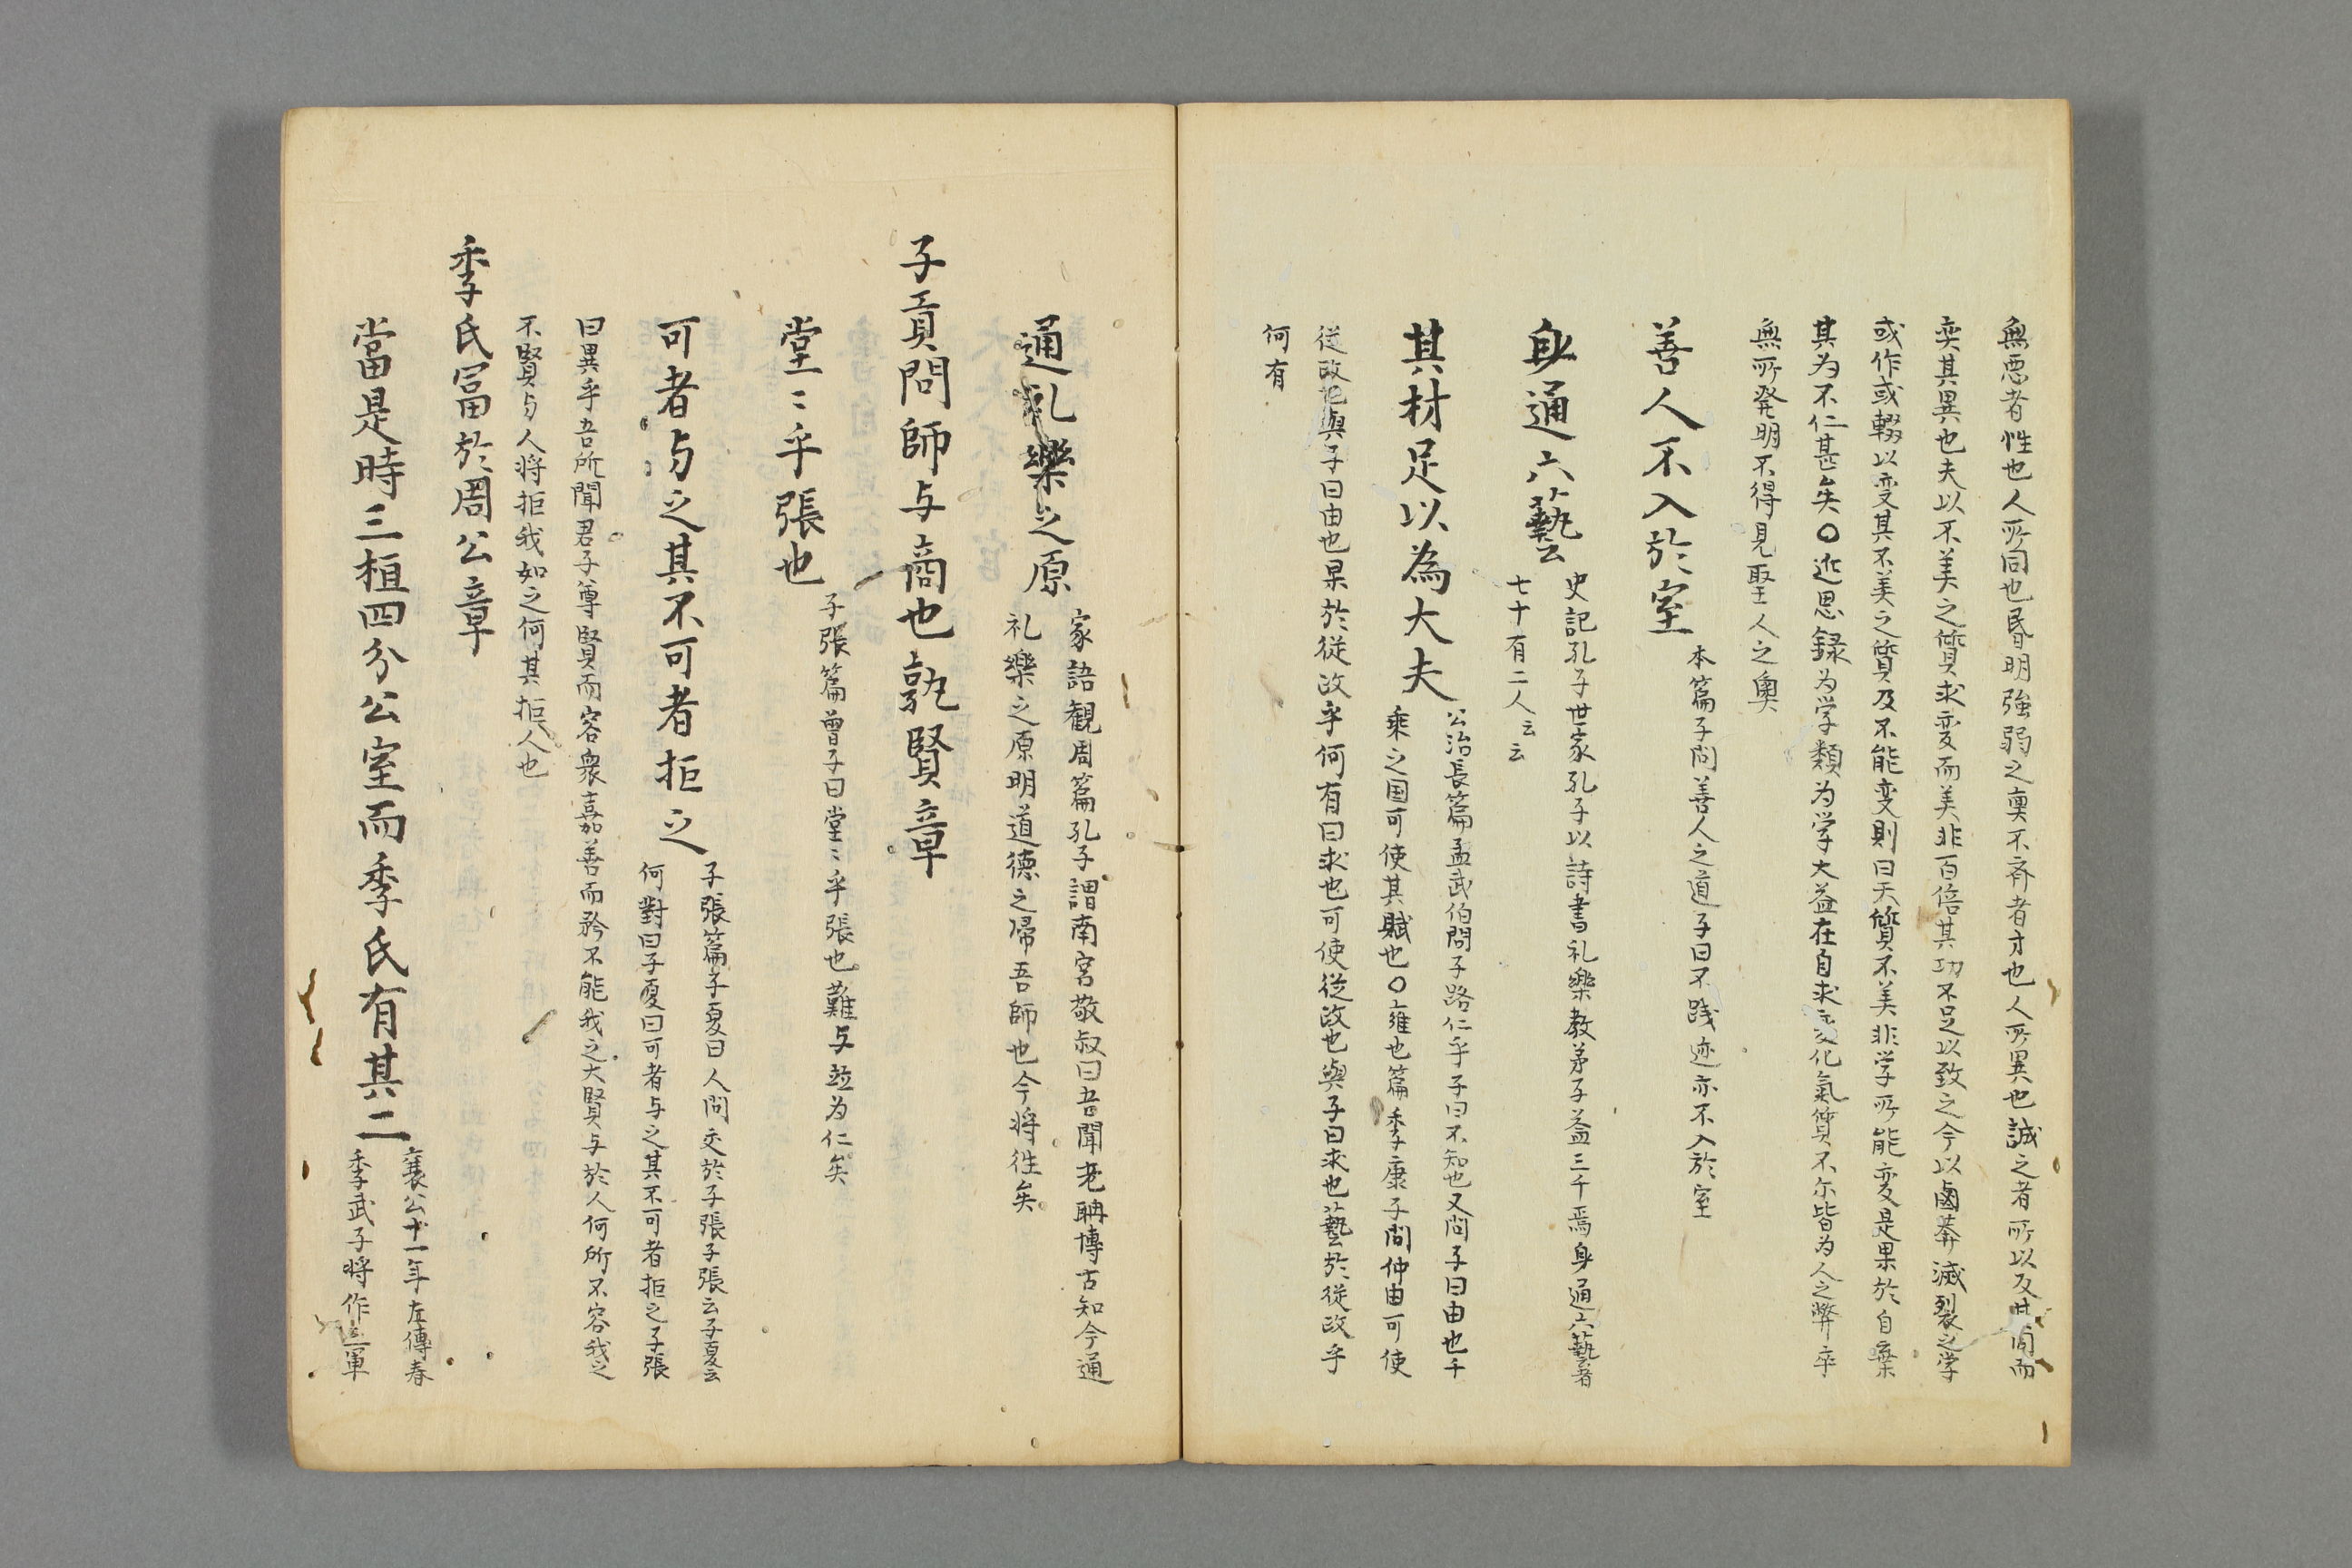 無悪者性也人所同也昏明強弱之稟不斉者才也人所異也誠之者所以反其同而
変其異也夫以不美之質求変而美非百倍其功不足以致之今以鹵莽滅裂之学
或作或輟以変其不美之質及不能変則曰天質不美非学所能変是果於自棄
其为不仁甚矣〇近思録为学類为学大益在自求変化氣質不尓皆为人之弊卒
無所発明不得見聖人之奥
善人不入於室
本篇子問善人之道子曰不践迹亦不入於室
身通六藝
史記孔子世家孔子以詩書礼樂教弟子益三千焉身通六藝者
七十有二人云云
其材足以為大夫
公冶長篇孟武伯問子路仁乎子曰不知也又問子曰由也千
乘之国可使其賦也〇雍也篇季康子問仲由可使
従政也與子曰由也果於従政乎何有曰求也可使従政也與子曰求也藝於従政乎
何有
通礼樂之原
家語観周篇孔子謂南宮敬叔曰吾聞老聃博古知今通
礼樂之原明道德之帰吾師也今将往矣
子貢問師与商也孰賢章
堂〻乎張也
子張篇曾子曰堂〻乎張也難与並为仁矣
可者与之其不可者拒之
子張篇子夏曰人問交於子張子張云子夏云
何對曰子夏曰可者与之其不可者拒之子張
曰異乎吾所聞君子尊賢而容衆嘉善而矜不能我之大賢与於人何所不容我之
不賢与人将拒我如之何其拒人也
季氏冨於周公章
當是時三桓四分公室而季氏有其二
襄公十一年左傳春
季武子将作三軍